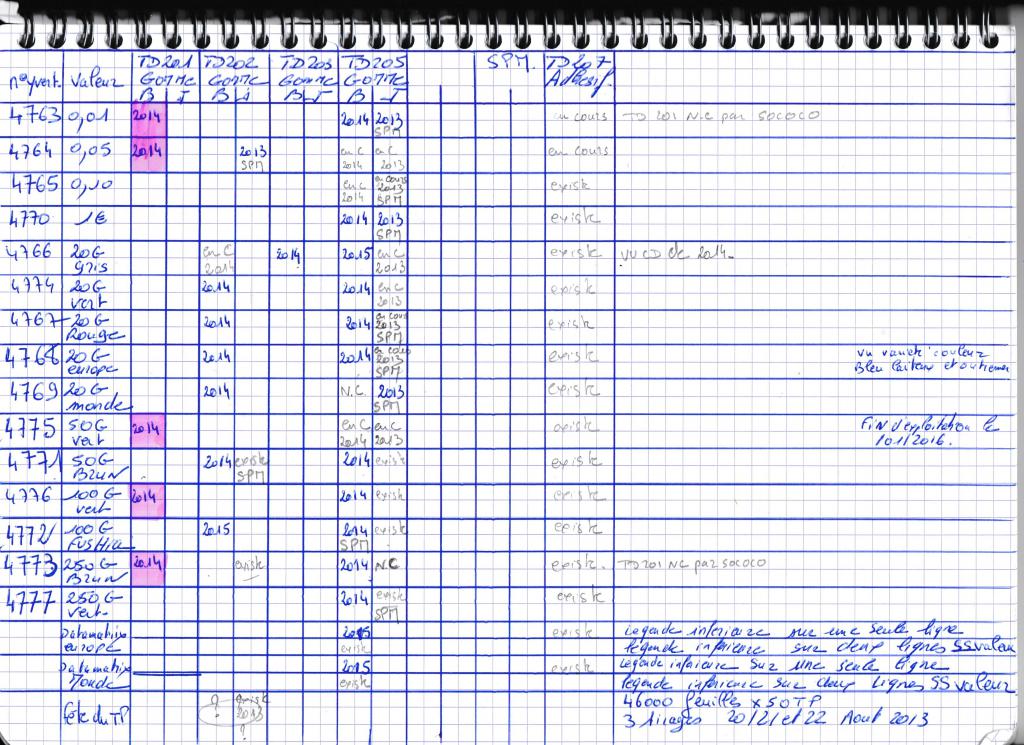 n°yvert. Valeur TD201 GOMME B I TD202 GOMME B I TD203 GOMME B I TD205 GOMME B I SPM. TD207 Adhesif.
4763 0,01 2014 2014 2013 SPM en cours TD 201 N.C par SOCOCO
4764 0,05 2014 2013 SPM en C 2014 en C 2013 en cours
4765 0,10 en C 2014 en cours 2013 SPM exist
4770 1€ 2014 2013 SPM exist
4766 20G Gris en C 2014 2014 2015 en C 2013 exist VU CD de 2014
4774 20G vert 2014 2014 en C 2013 exist
4767 20G Rouge 2014 2014 en cours 2013 SPM exist
4768 20G europe 2014 2014 en cours 2013 SPM exist vu varieté couleur
Bleu laiteux et outremer
4769 20G monde 2014 N.C. 2013 SPM exist
4775 50G vert 2014 en C 2014 en C 2013 exist FIN d'exploitation le
101/2016.
4771 50G Brun 2014 exist SPM 2014 exist exist
4776 100G vert 2014 2014 exist exist
4772 100G Fushia 2015 2014 SPM exist exist
4773 250G Brun 2014 exist 2014 N.C exist. TD201 NC par SOCOCO
4777 250G vert 2014 exist SPM exist
Datamatrix europe 2015 exist exist Legende inferieure sur une seule ligne
legende inferieure sur deux lignes SS valeur
Datamatrix Monde 2015 exist exist Legende inferieure sur une seule ligne
legende inferieure sur deux lignes SS valeur
fête du TP ? exist 2013 ? 46000 feuilles x 50TP
3 tirages 20/21 et 22 Aout 2013